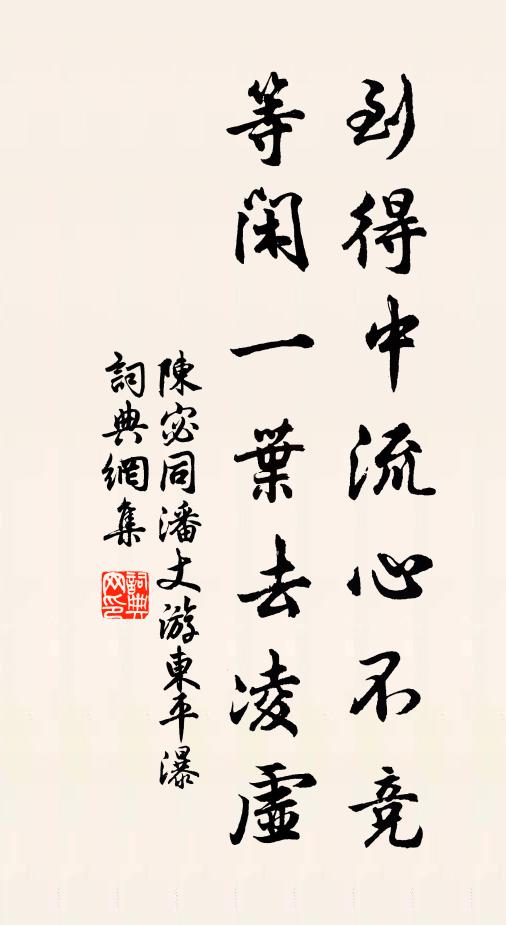 到得中流心不竞
等闲一葉去凌虛
陳宓同潘丈游東平瀑
詞典網集
詞典网印